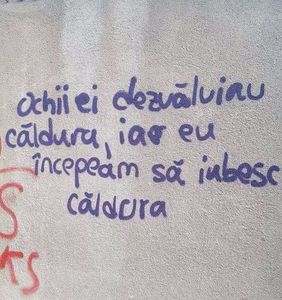 ochii ei dezvăluiau
căldura, iar eu
începeam să iubesc
căldura